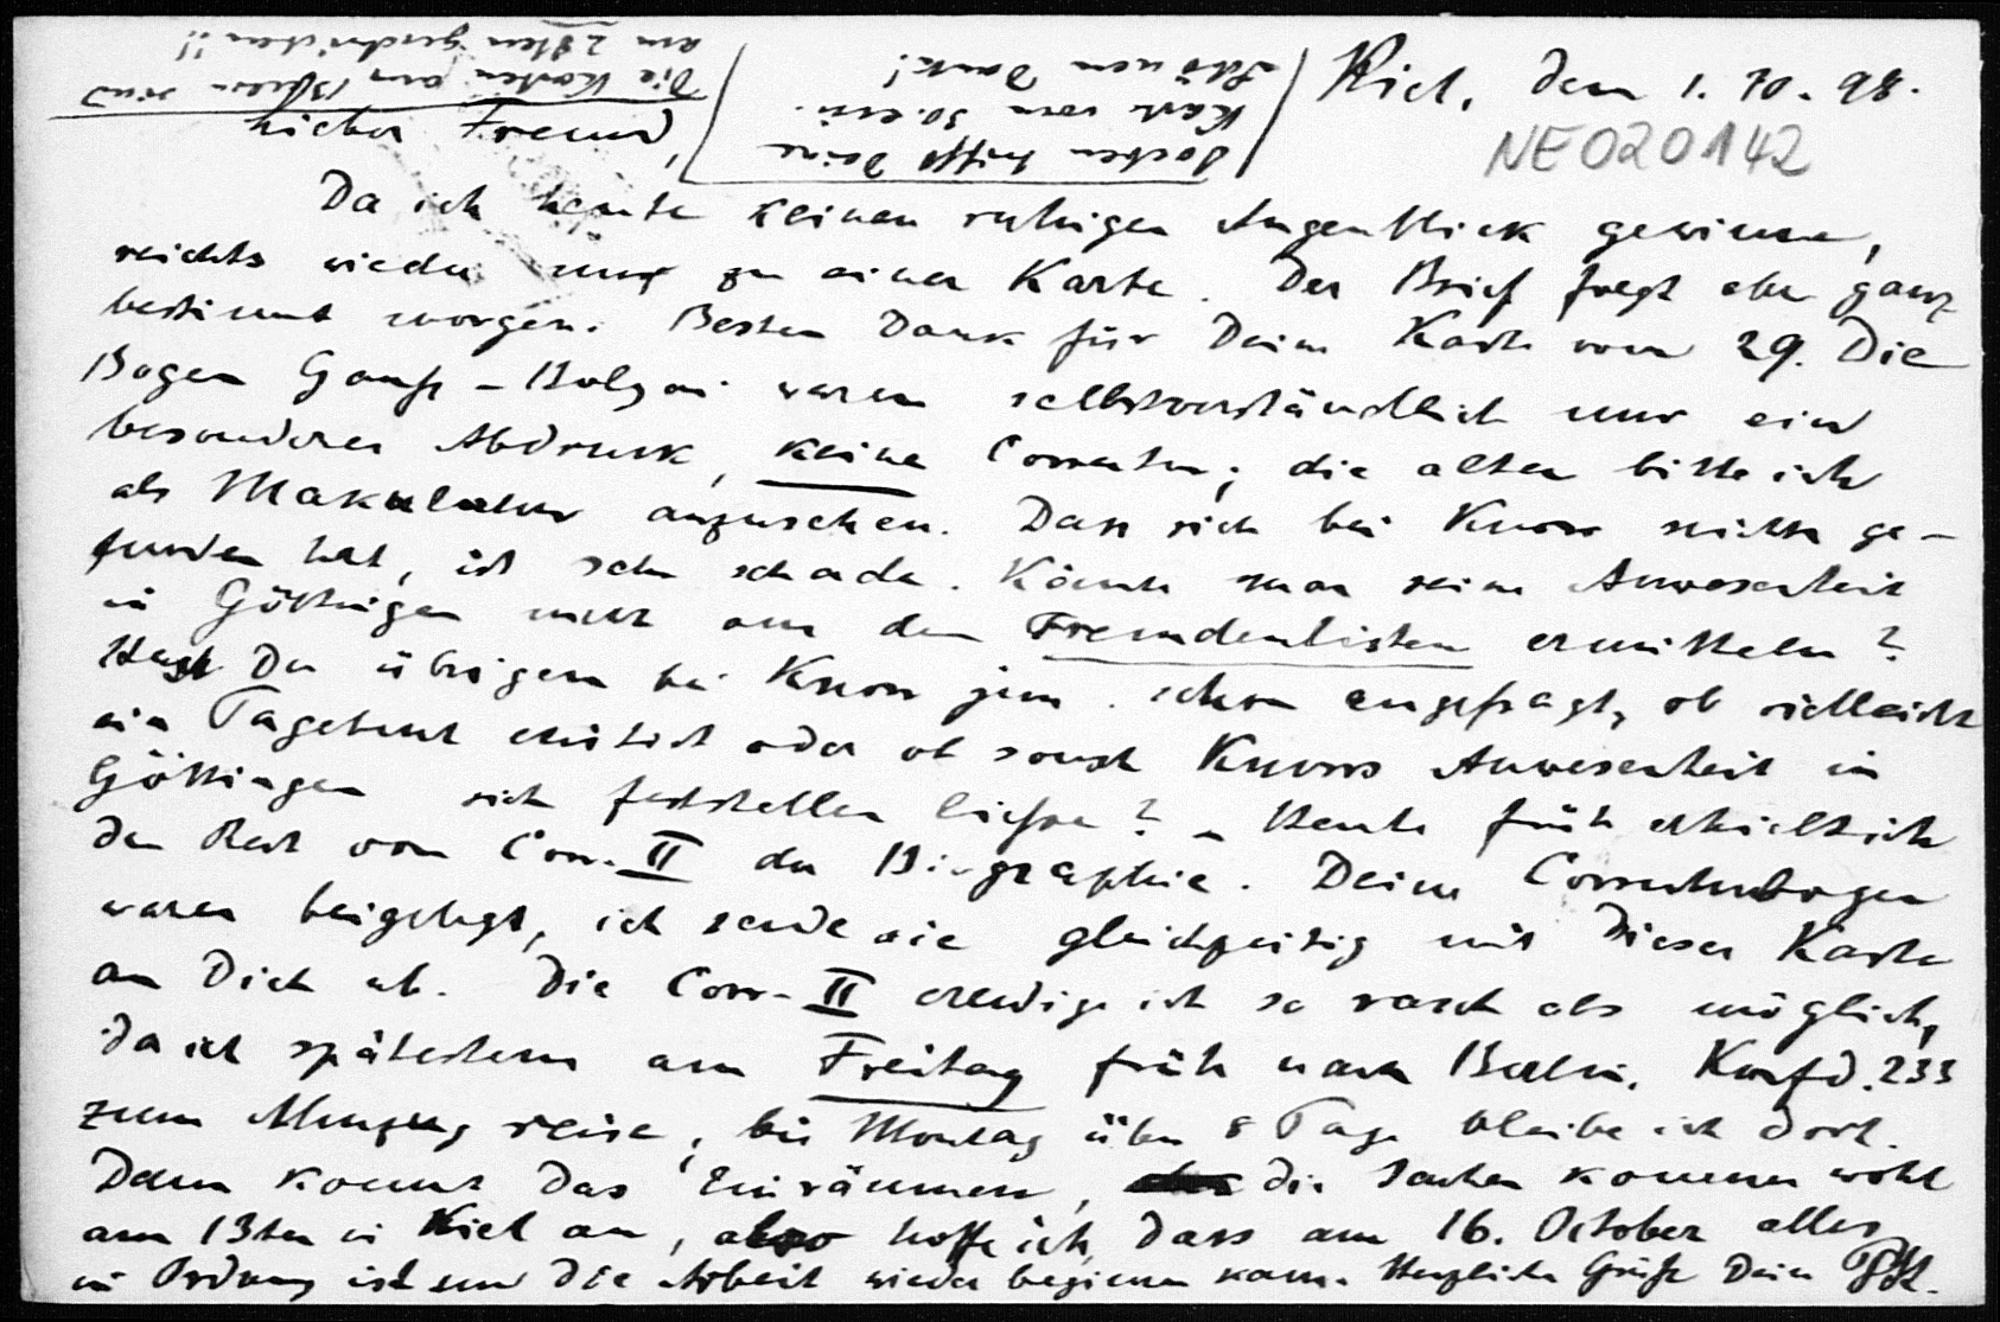 Kiel, den 1. 10. 98.
NE020142
Soeben trifft Deine
Karte vom 30. ein.
Schönen Dank!
Die Karten an sind
am 28ten geschrieben!!
Lieber Freund,
Da ich heute keinen ruhigen Augenblick gewinne,
reichts wieder nur zu einer Karte. Der Brief folgt aber ganz
bestimmt morgen. Besten Dank für Deine Karte vom 29. Die
Bogen Gauß-Bolyai waren selbstverständlich nur ein
besonderer Abdruck, keine Correctur; die alten bitte ich
als Makulatur anzusehen. Dass sich bei Knorr nichts ge-
funden hat, ist sehr schade. Könnte man seine Anwesenheit
in Göttingen nicht aus den Fremdenlisten ermitteln?
Hast Du übrigens bei Knorr jun. schon angefragt, ob vielleicht
ein Tagebuch existirt oder ob sonst Knorrs Anwesenheit in
Göttingen sich feststellen liesse? – Heute früh erhielt ich
den Rest von Corr. II der Biographie. Deine Correcturbogen
waren beigelegt, ich sende sie gleichzeitig mit dieser Karte
an Dich ab. Die Corr. II erledige ich so rasch als möglich,
da ich spätestens am Freitag früh nach Berlin, Kurfd. 233
zum Umzug reise; bis Montag über 8 Tage bleibe ich dort.
Dann kommt das Einräumen, die Sachen kommen wohl
am 13ten in Kiel an, also hoffe ich, dass am 16. October alles
in Ordnung ist und die Arbeit wieder beginnen kann. Herzliche Grüße Dein